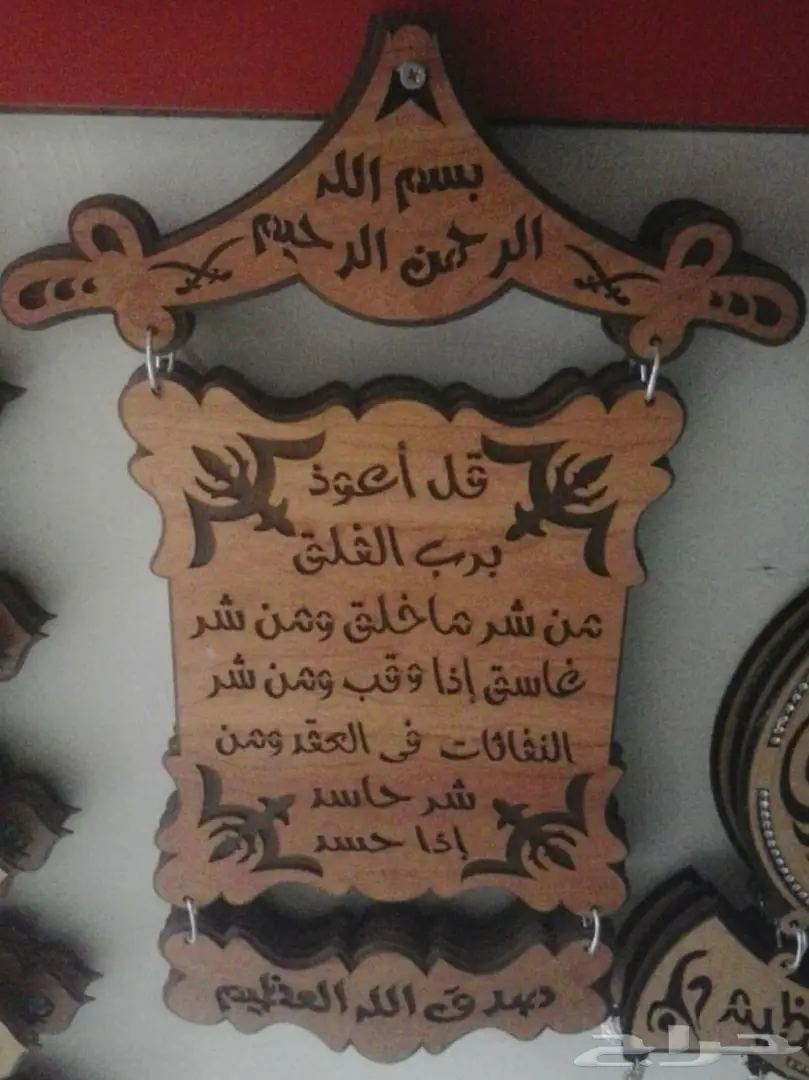 بسم الله
الرحمن الرحيم
قل أعوذ
برب الفلق
من شر ما خلق ومن شر
غاسق إذا وقب ومن شر
النفاثات في العقد ومن
شر حاسد
إذا حسد
صدق الله العظيم
حراج